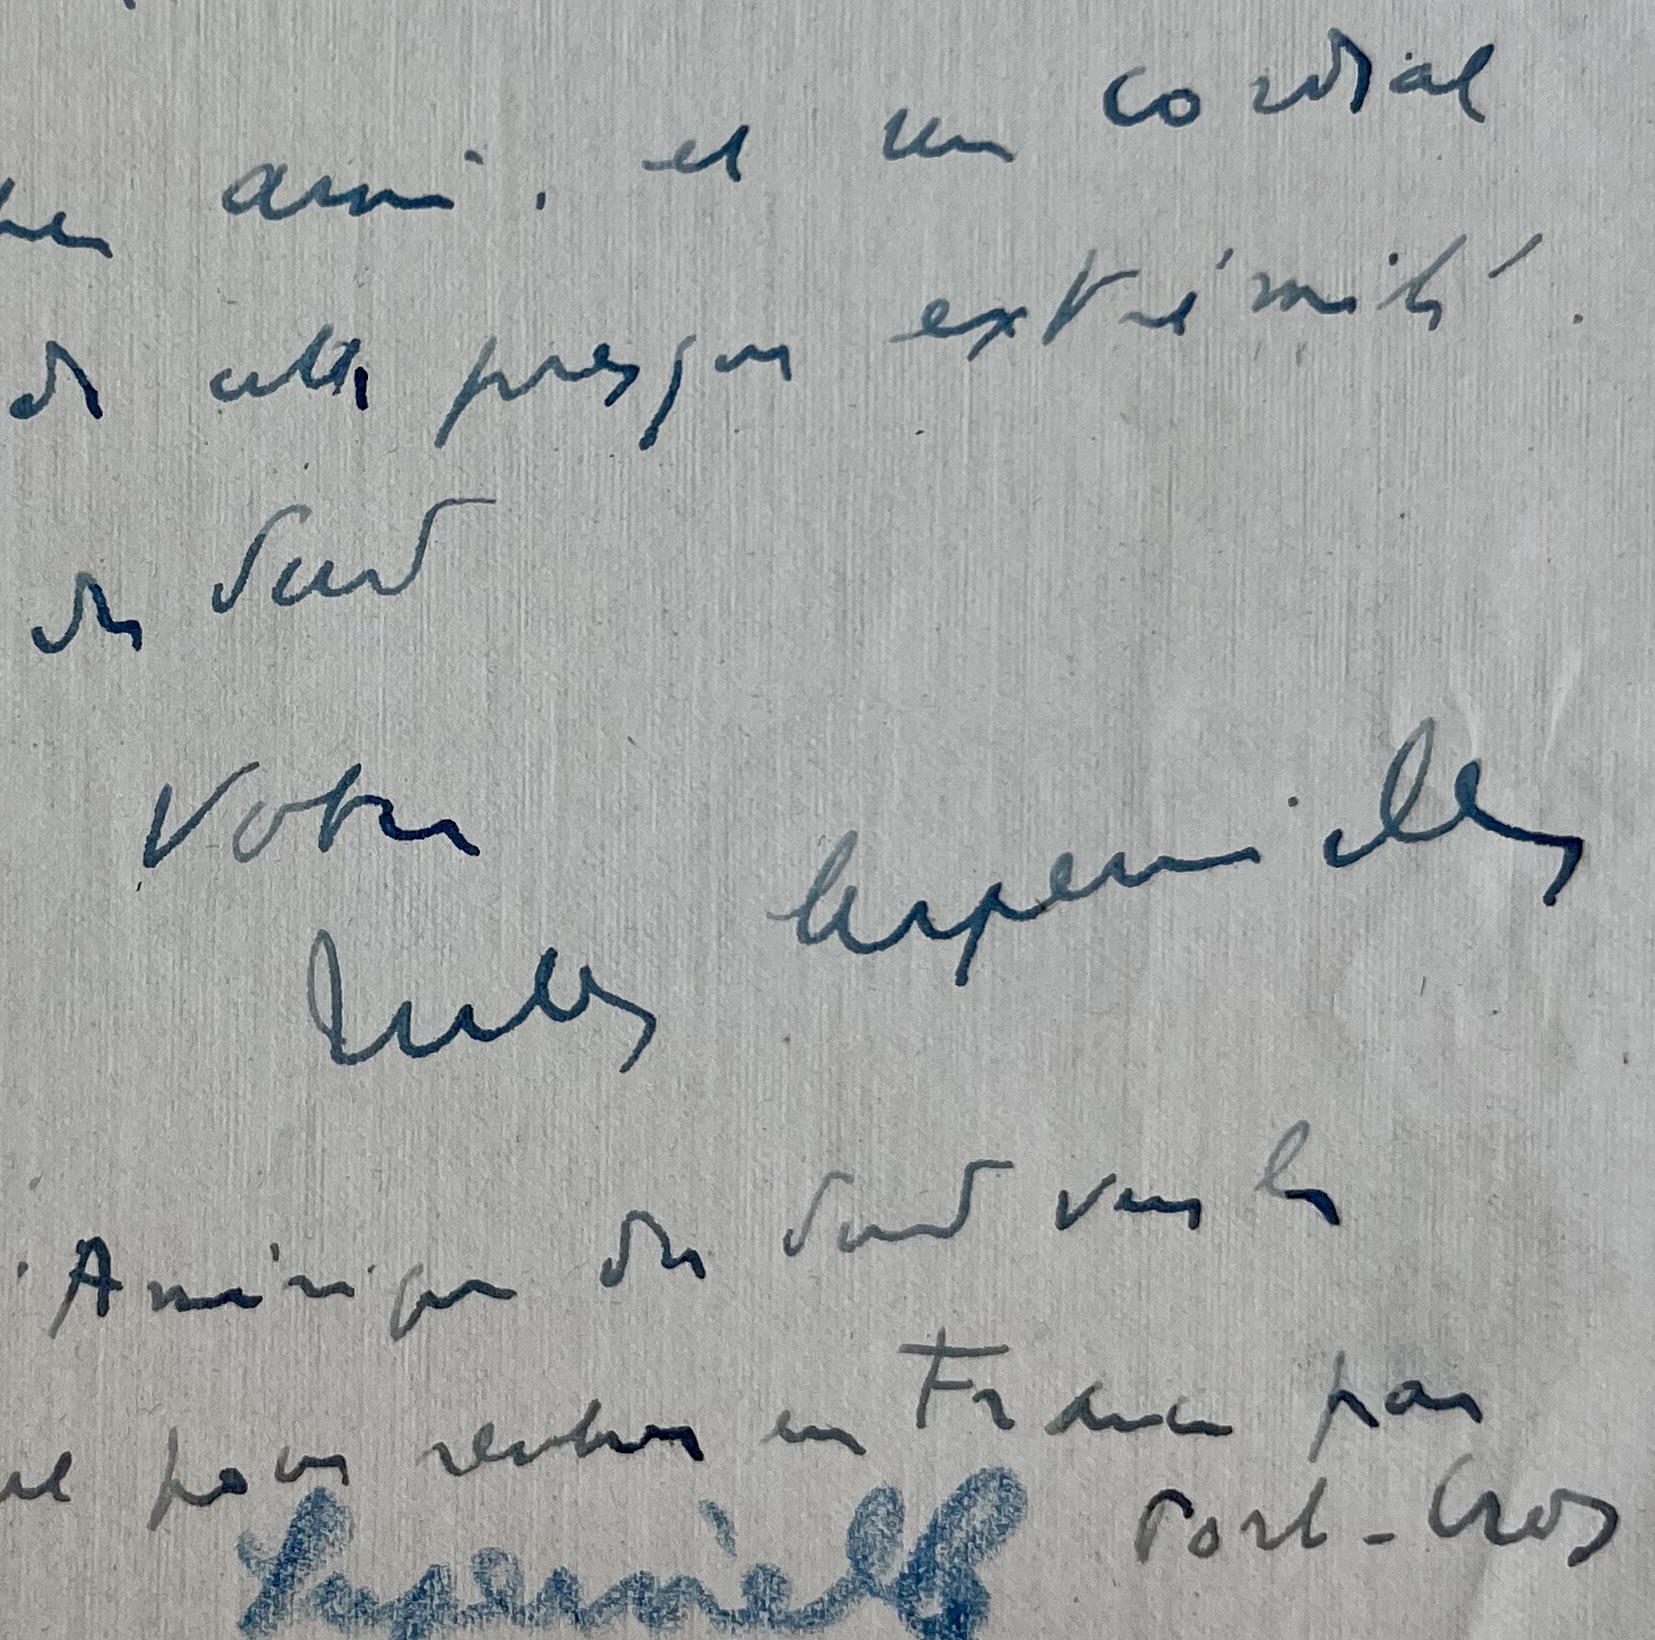 ami. et un cordial
de cette presque extrémité.
du Sud
Votre
Jules Supervielle
Amérique du Sud vers le
pour rentrer en France par
Port-Cros
Supervielle